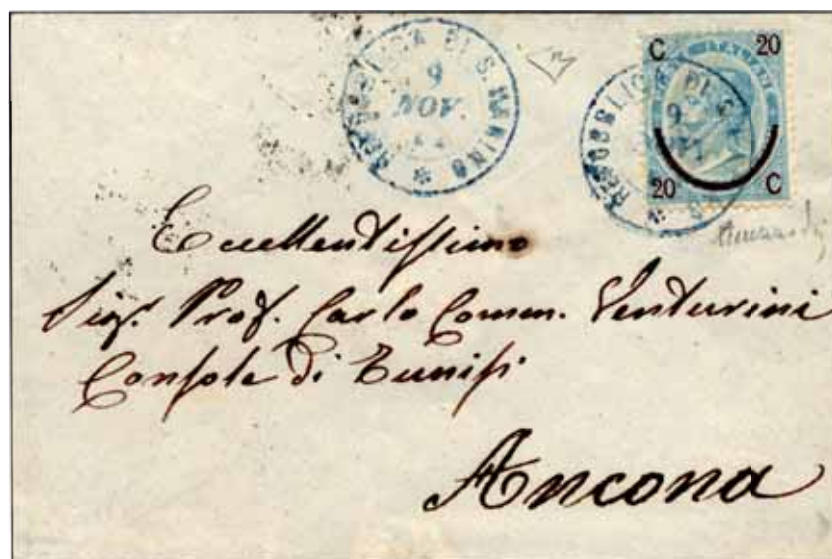 REPUBBLICA DI S. MARINO
9
NOV.
C 20
REPUBBLICA DI S.
9
20 C
Eccellentissimo
Sig. Prof. Carlo Comm. Venturini
Console di Tunisi
Ancona